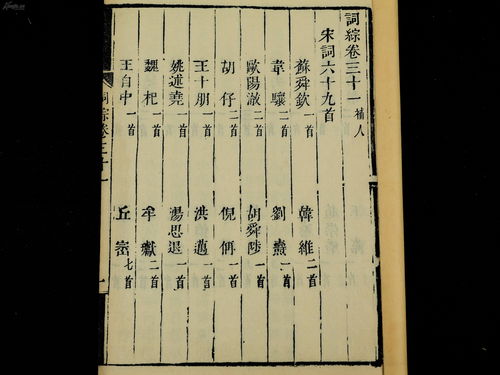 詞綜卷三十一 補人
宋詞六十九首
蘇舜欽 一首 韓維 二首
韋驤 二首 劉燾 一首
歐陽澈 二首 胡舜陟 一首
胡仔 二首 倪偁 一首
王十朋 一首 洪邁 一首
姚述堯 一首 湯思退 一首
魏杞 一首 牟巘 二首
王自中 一首 丘崈 七首
詞綜卷三十一
一